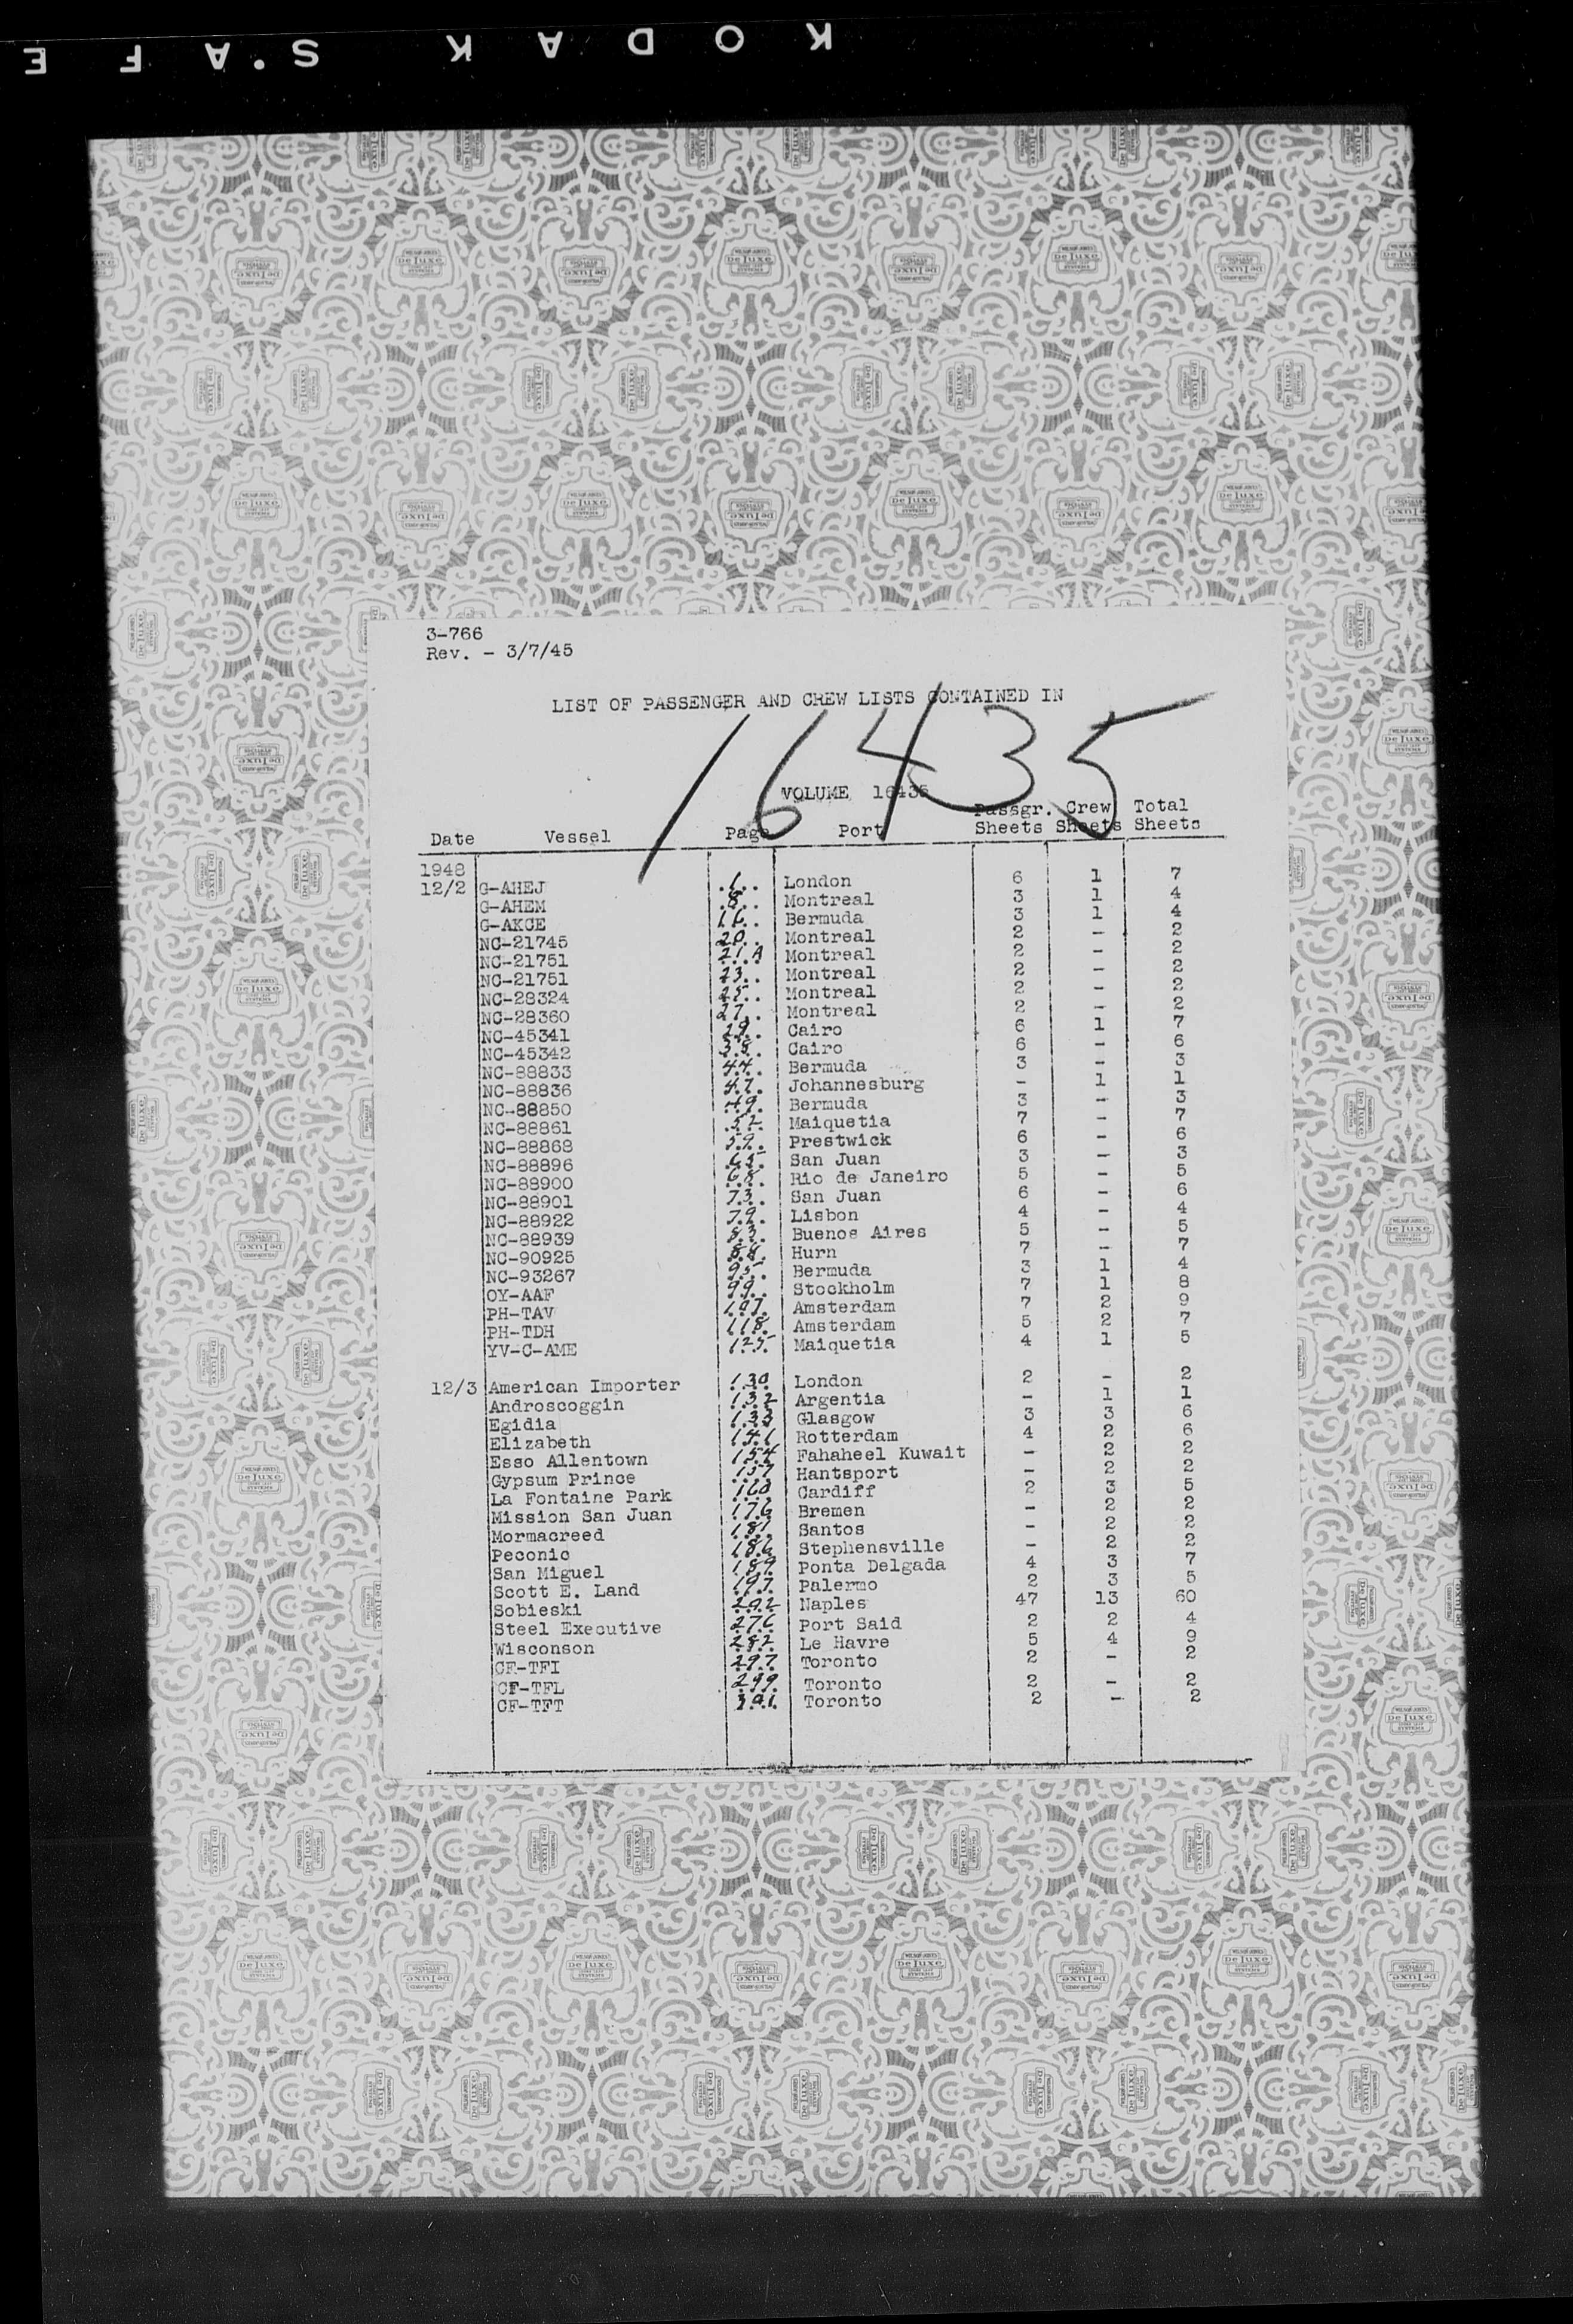 KODAK S.AFE
3-766
Rev. - 3/7/45
LIST OF PASSENGER AND CREW LISTS CONTAINED IN
16435
VOLUME 16435
Date Vessel Page Port Passgr. Sheets Crew Sheets Total Sheets
1948
12/2 G-AHEJ 1 London 6 1 7
G-AHEM 8 Montreal 3 1 4
G-AKCE 16 Bermuda 3 1 4
NC-21745 20 Montreal 2 - 2
NC-21751 21A Montreal 2 - 2
NC-21751 23 Montreal 2 - 2
NC-28324 25 Montreal 2 - 2
NC-28360 27 Montreal 2 - 2
NC-45341 29 Cairo 6 1 7
NC-45342 38 Cairo 6 - 6
NC-88833 44 Bermuda 3 - 3
NC-88836 47 Johannesburg - 1 1
NC-88850 49 Bermuda 3 - 3
NC-88861 52 Maiquetia 7 - 7
NC-88868 59 Prestwick 6 - 6
NC-88896 65 San Juan 3 - 3
NC-88900 68 Rio de Janeiro 5 - 5
NC-88901 73 San Juan 6 - 6
NC-88922 79 Lisbon 4 - 4
NC-88939 83 Buenos Aires 5 - 5
NC-90925 88 Hurn 7 - 7
NC-93267 95 Bermuda 3 1 4
OY-AAF 99 Stockholm 7 1 8
PH-TAV 107 Amsterdam 7 2 9
PH-TDH 118 Amsterdam 5 2 7
YV-C-AME 125 Maiquetia 4 1 5
12/3 American Importer 130 London 2 - 2
Androscoggin 132 Argentia - 1 1
Egidia 133 Glasgow 3 3 6
Elizabeth 141 Rotterdam 4 2 6
Esso Allentown 154 Fahaheel Kuwait - 2 2
Gypsum Prince 157 Hantsport - 2 2
La Fontaine Park 160 Cardiff 2 3 5
Mission San Juan 176 Bremen - 2 2
Mormacreed 181 Santos - 2 2
Peconic 186 Stephensville - 2 2
San Miguel 189 Ponta Delgada 4 3 7
Scott E. Land 197 Palermo 2 3 5
Sobieski 202 Naples 47 13 60
Steel Executive 276 Port Said 2 2 4
Wisconson 282 Le Havre 5 4 9
CF-TFI 297 Toronto 2 - 2
CF-TFL 299 Toronto 2 - 2
CF-TFT 301 Toronto 2 - 2
WILSON JONES
De Luxe